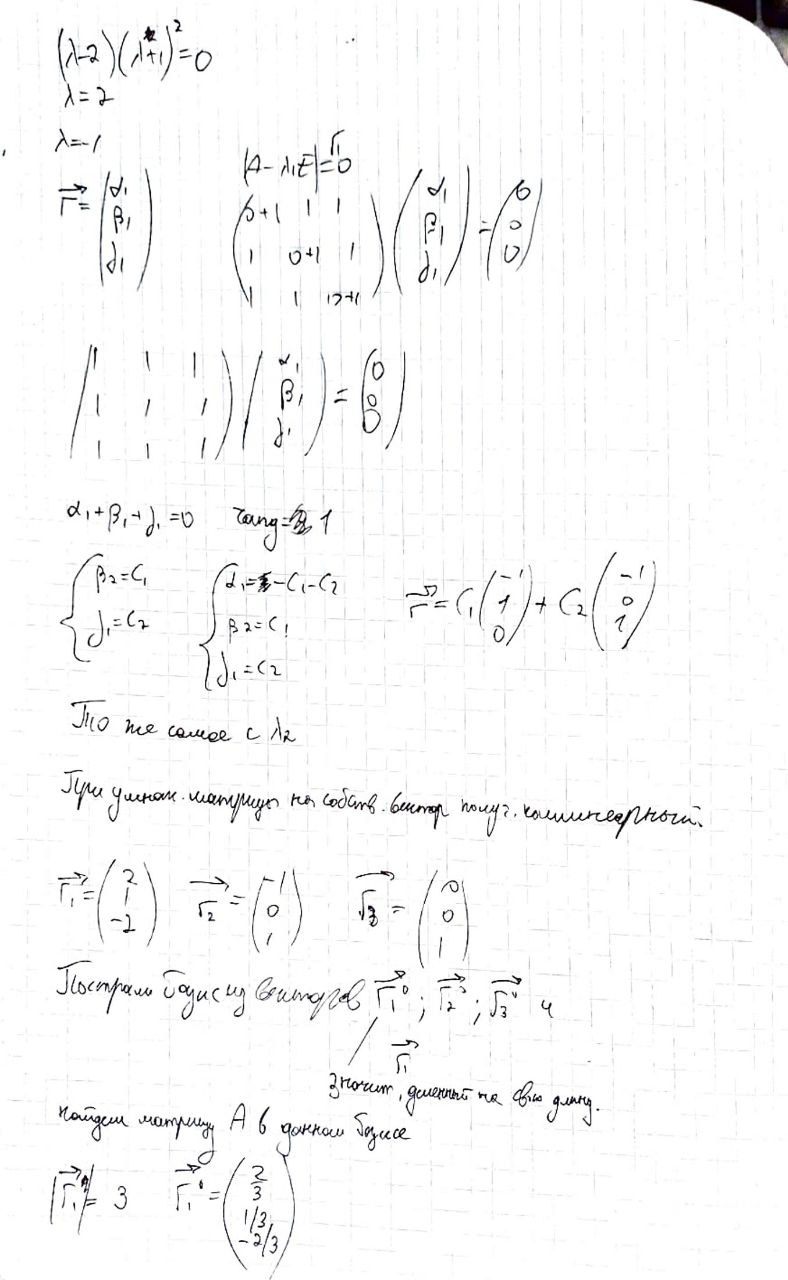 (λ-2)(λ+1)²=0
λ=2
λ=-1
|A-λ₁E|=0
r⃗=(α₁ β₁ γ₁) (0+1 1 1 1 0+1 1 1 1 0+1)(α₁ β₁ γ₁)=(0 0 0)
(1 1 1 1 1 1 1 1 1)(α₁ β₁ γ₁)=(0 0 0)
α₁+β₁+γ₁=0 rang=1
{β₂=C₁ γ₁=C₂ {α₁=-C₁-C₂ β₂=C₁ γ₁=C₂ r⃗=C₁(-1 1 0)+C₂(-1 0 1)
То же самое с λ₂
При умнож. матрицы на собств. вектор получ. коллинеарный.
r₁⃗=(2 1 -2) r₂⃗=(-1 0 1) r₃⃗=(0 0 1)
Построим базис из векторов r₁⃗⁰; r₂⃗⁰; r₃⃗⁰ и
r₁⃗
значит, деленный на свою длину.
найдем матрицу A в данном базисе
|r₁⃗|=3 r₁⃗⁰=(2/3 1/3 -2/3)